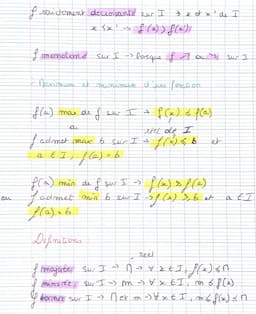 f strictement décroissante sur I → x et x' de I
x < x' → f(x) > f(x')
f monotone sur I → lorsque f ↗ ou ↘ sur I
Maximum et minimum d'une fonction
f(a) max de f sur I → f(x) ≤ f(a)
a réel de I
f admet max b sur I → f(x) ≤ b et
a ∈ I, f(a) = b
f(a) min de f sur I → f(x) ≥ f(a)
ou f admet min b sur I → f(x) ≥ b et a ∈ I
f(a) = b
Définitions
réel
f majorée sur I → M → ∀ x ∈ I, f(x) ≤ M
f minorée sur I → m → ∀ x ∈ I, m ≤ f(x)
f bornée sur I → M et m → ∀ x ∈ I, m ≤ f(x) ≤ M